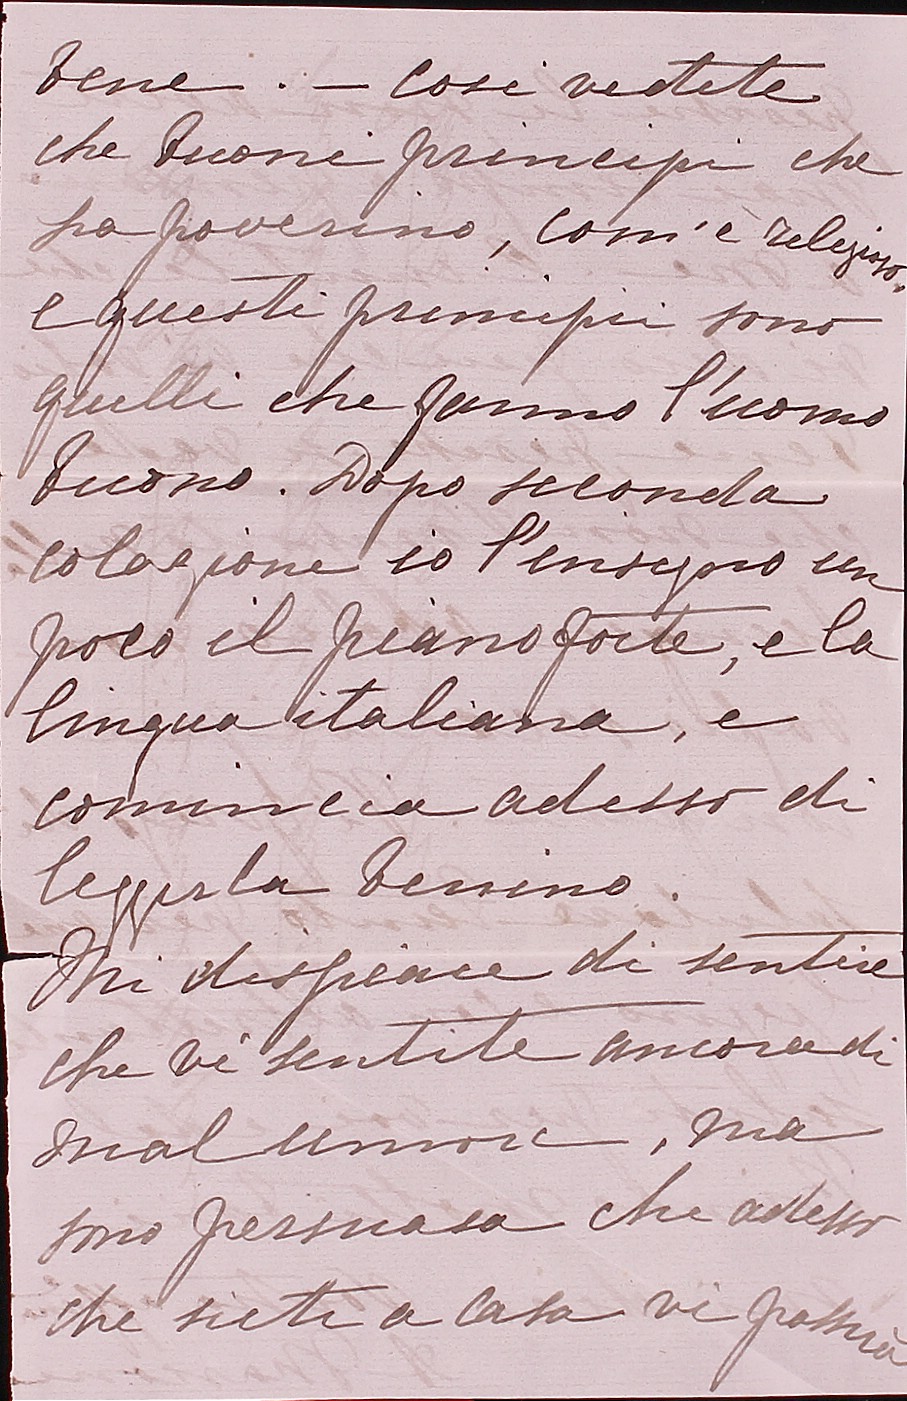 bene. — Cosi vedete
che buoni principi che
ha poverino, com'è religioso,
e questi principii sono
quelli che fanno l'uomo
buono. Dopo seconda
colazione io l'insegno un
poco il pianoforte, e la
lingua italiana, e
comincia adesso di
leggerla benino.
Mi dispiace di sentire
che vi sentite ancora di
mal umore, ma
sono persuasa che adesso
che siete a casa vi passerà